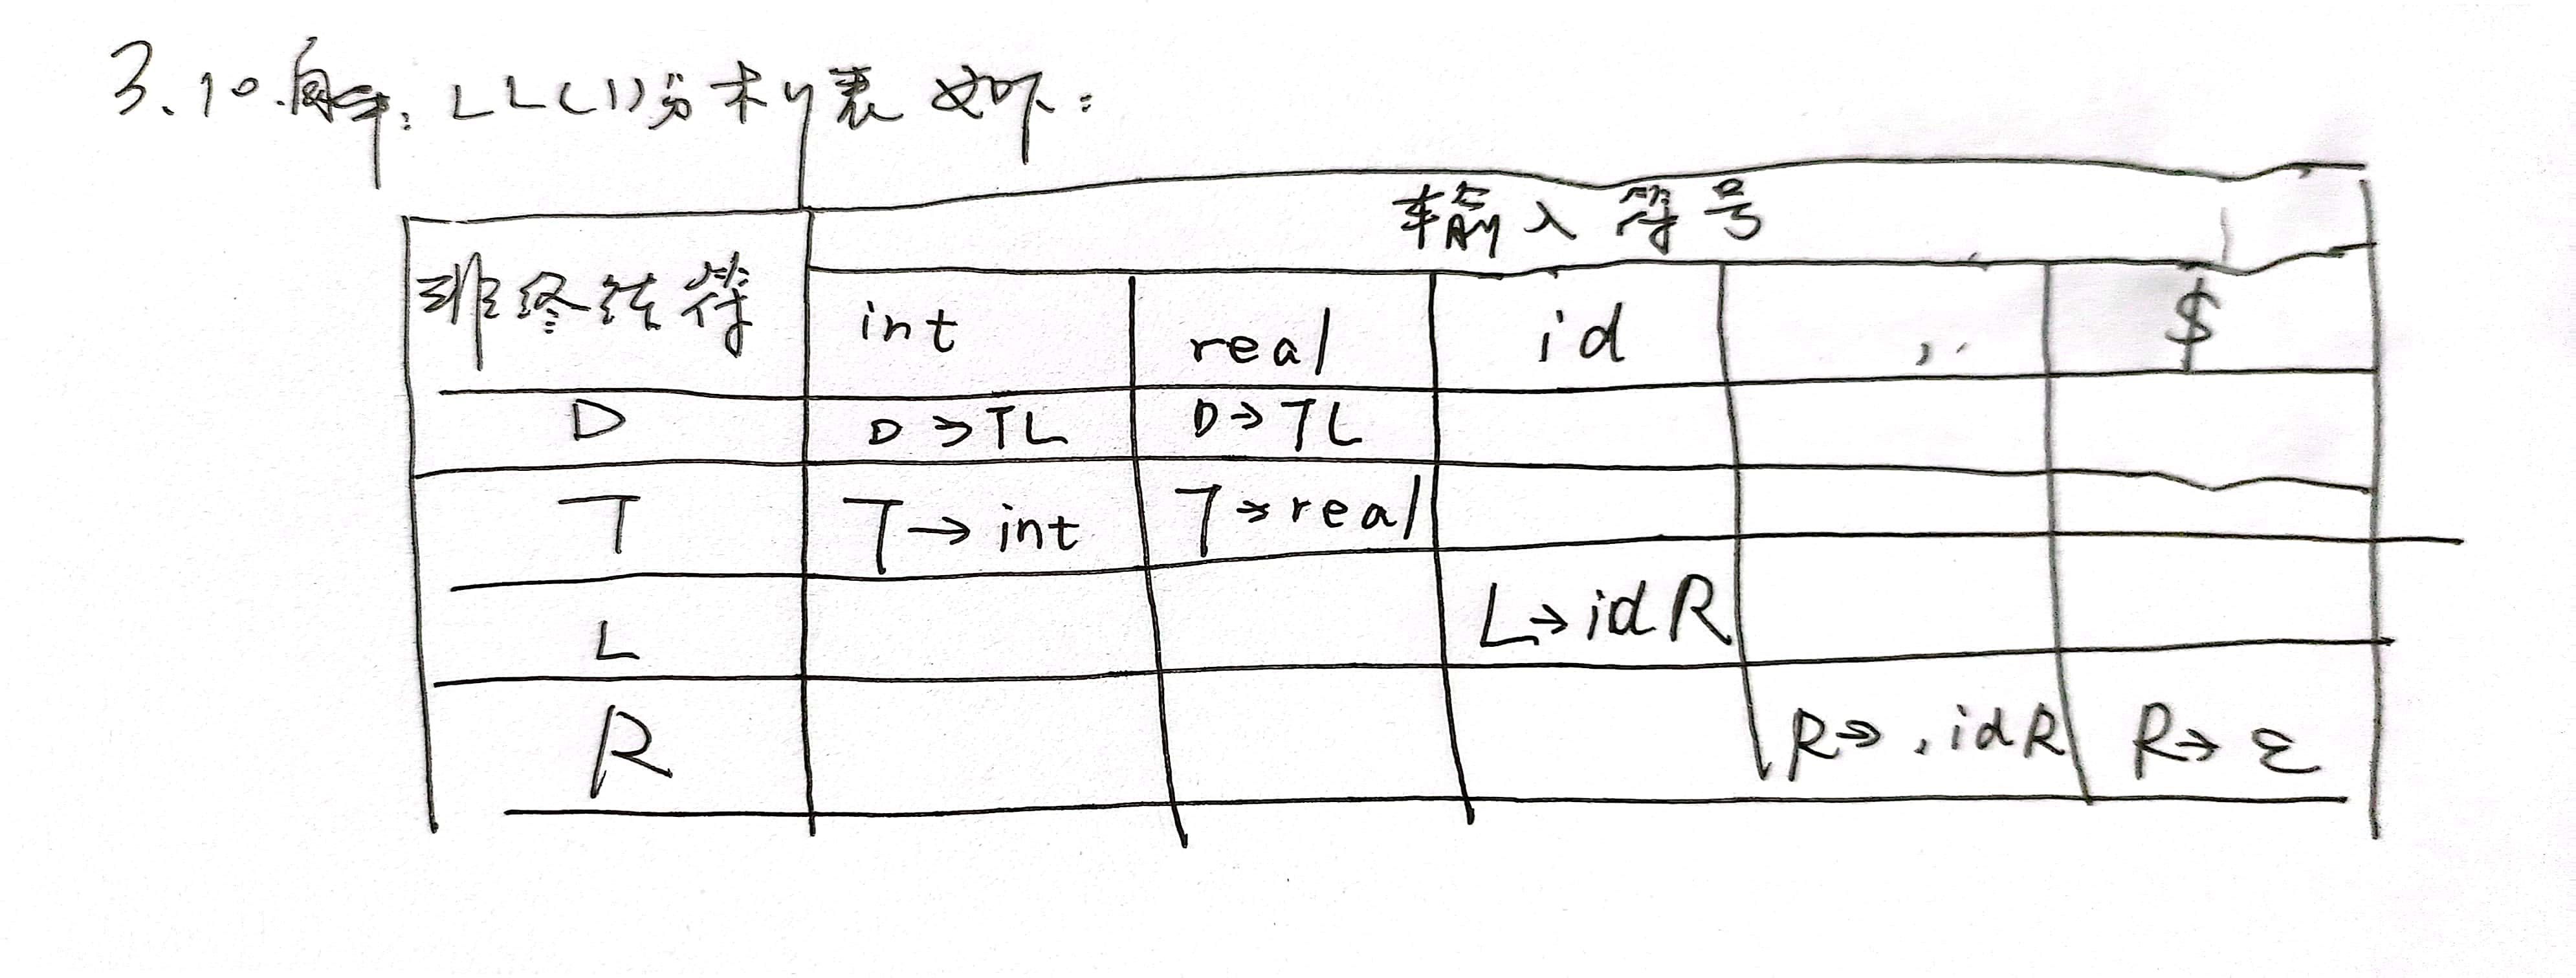 3.10.解: LL(1)分析表如下:
输入符号
非终结符 int real id , $
D D→TL D→TL
T T→int T→real
L L→idR
R R→,idR R→ε